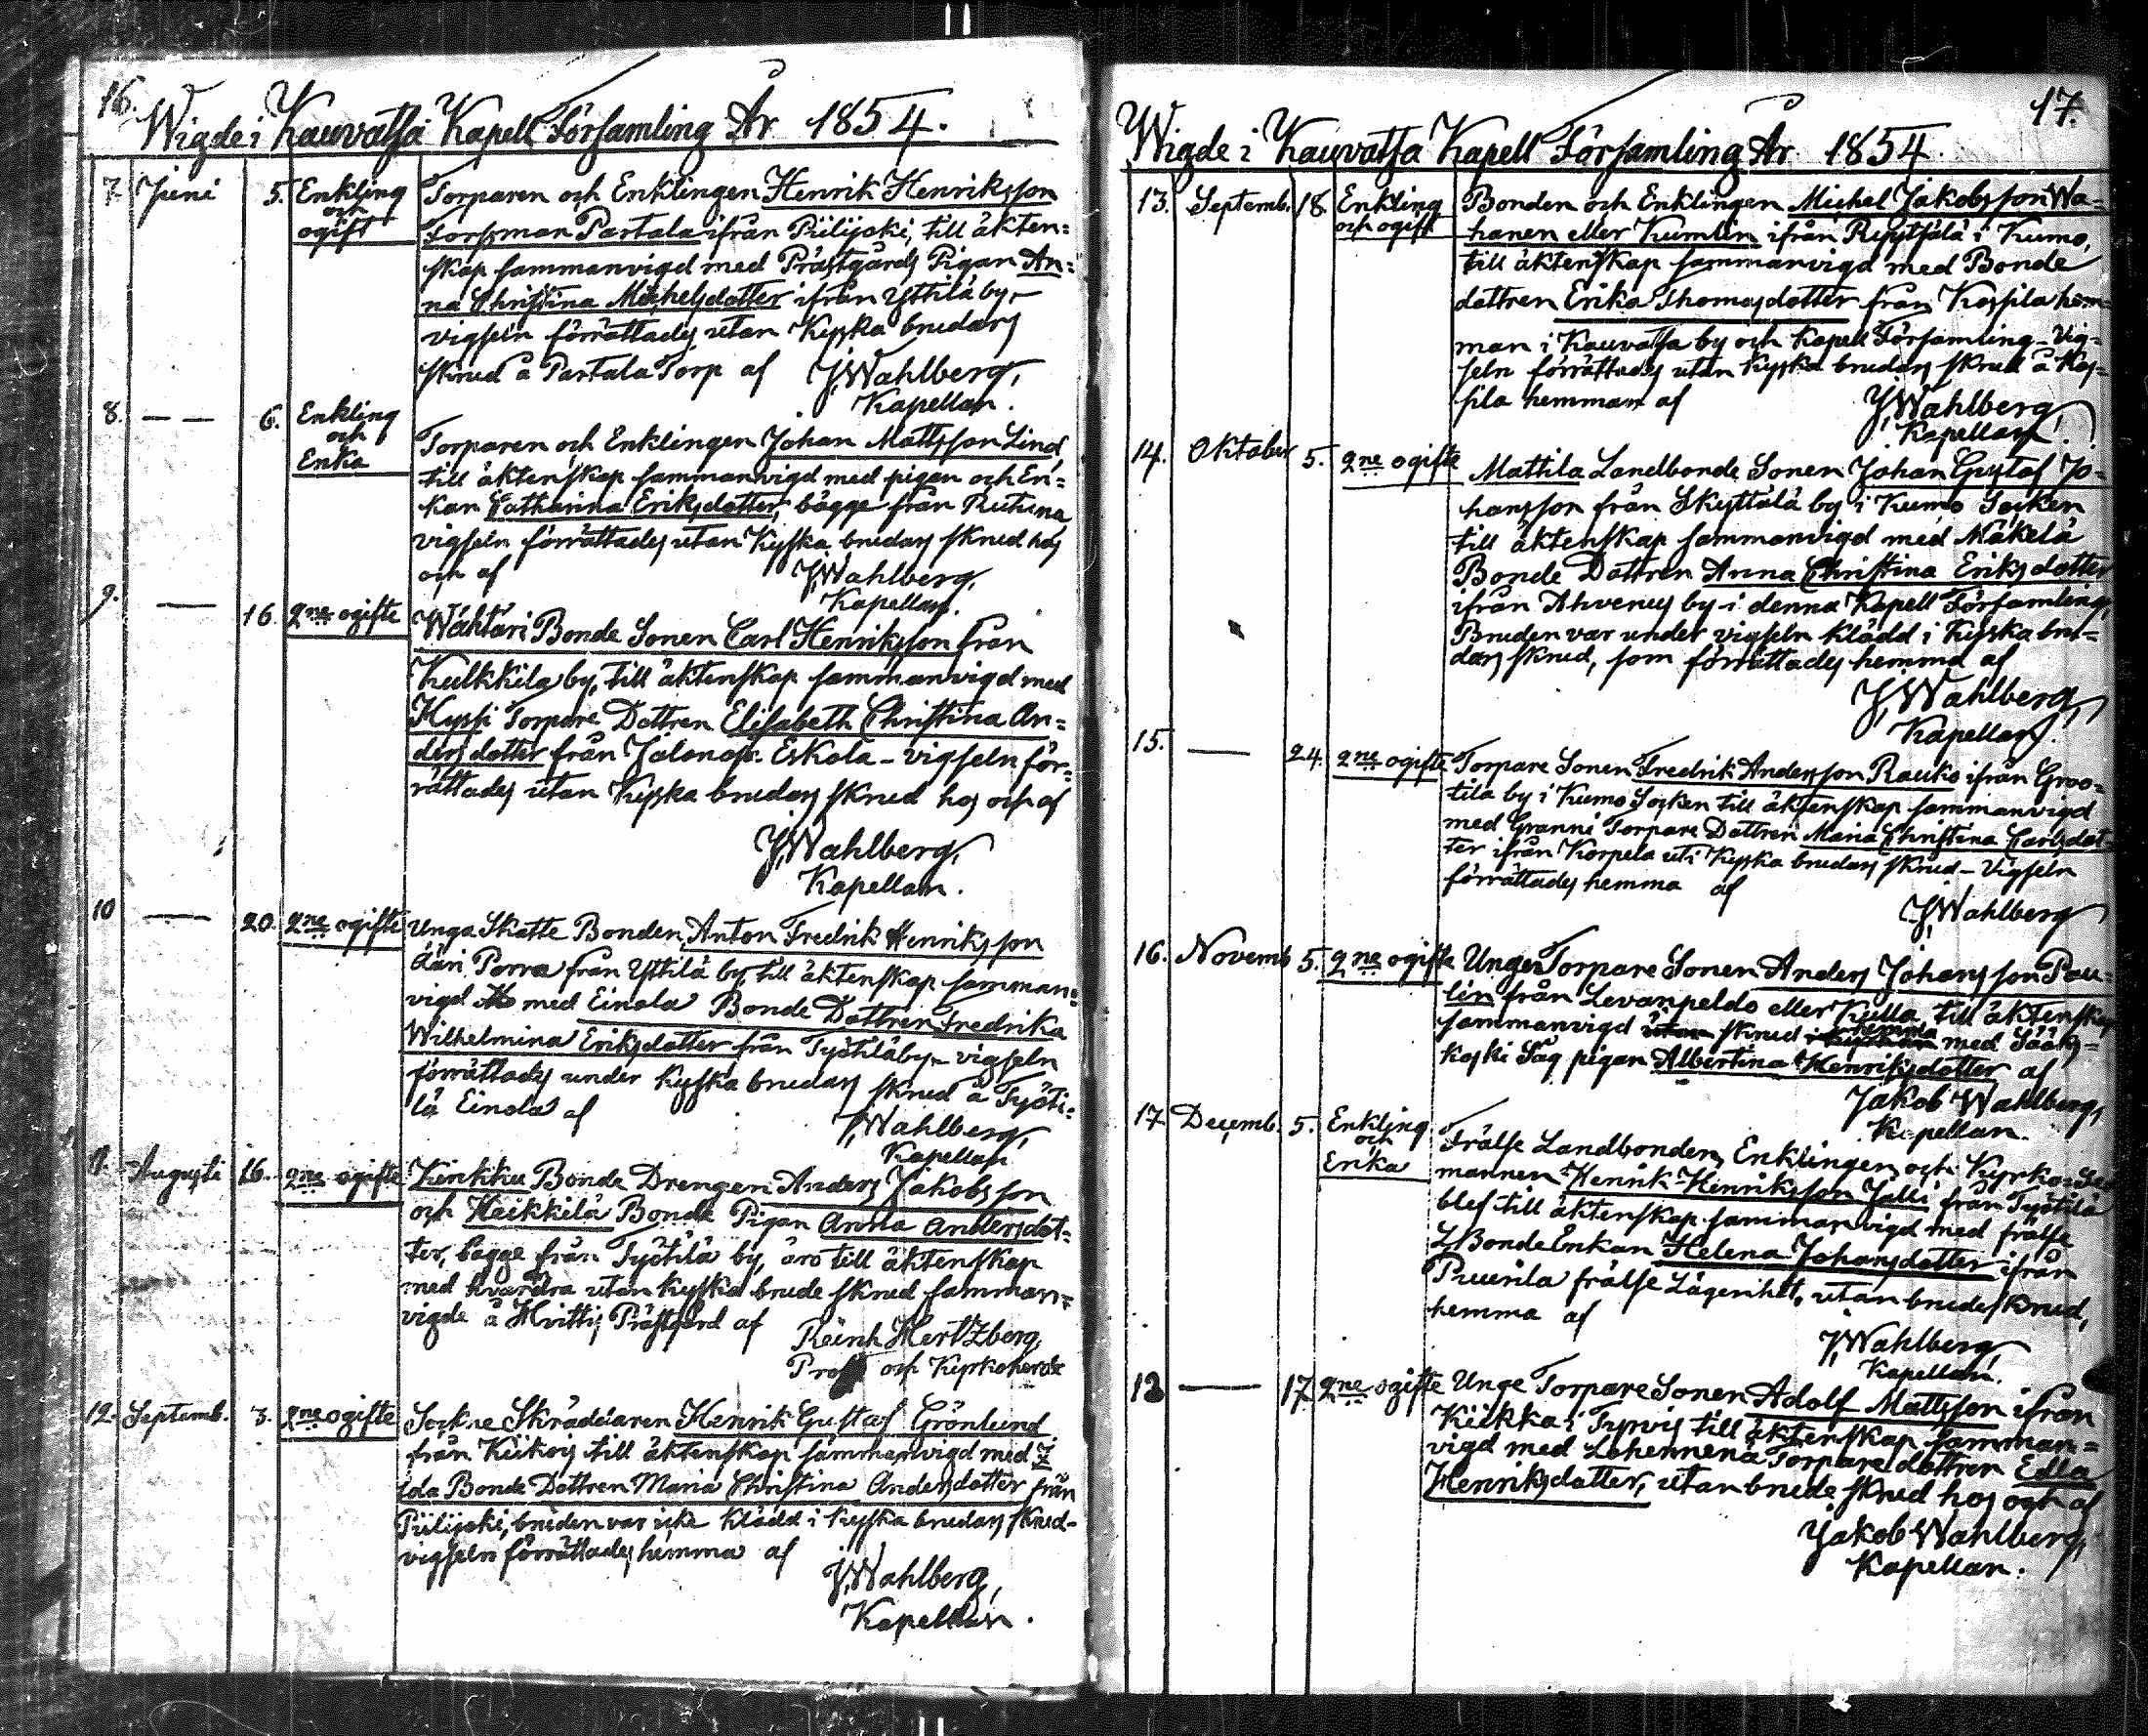 16.
Wigde i Kauvatsa Kapell Församling År 1854.
7. Juni 5. Enkling och ogift
Torparen och Enklingen Henrik Henriksson
Forssman Partala ifrån Piilijoki, till äkten=
skap sammanvigd med Prästgårds Pigan An=
na Christina Michelsdotter ifrån Yttilä by,
vigseln förrättades utan Kyska brudars
skrud å Partala Torp af JWahlberg,
Kapellan.
8. — — 6. Enkling och Enka
Torparen och Enklingen Johan Mattsson Lind,
till äktenskap sammanvigd med pigan och En=
kan Catharina Eriksdotter, bägge från
vigseln förrättades utan Kyska brudars skrud hos
och af JWahlberg,
Kapellan.
9. — 16. 2ne ogifte
Wähtäri Bonde Sonen Carl Henriksson från
Kulkkila by, till äktenskap sammanvigd med
Kyssi Torpare Dottren Elisabeth Christina An=
ders dotter från Eskola - vigseln för=
rättades utan Kyska brudars skrud hos och af
JWahlberg,
Kapellan.
10 — 20. 2ne ogifte
Unga Skatte Bonden Anton Fredrik Henriksson
Porra från Yttilä by, till äktenskap samman=
vigd med Einola Bonde Dottren Fredrika
Wilhelmina Eriksdotter från Työtilä by - vigseln
förrättades under Kyska brudars skrud å Työti=
lä Einola af JWahlberg,
Kapellan
Augusti 16. 2ne ogifte
Kirkku Bonde Drengen Anders Jakobsson
och Heikkilä Bonde Pigan Anna Andersdot=
ter, bägge från Työtilä by, äro till äktenskap
med hvardra utan kyska brude skrud samman=
vigde å Hvittis Prästgård af Reinh Hertzberg,
Prost och Kyrkoherde
12. Septemb. 3. 2ne ogifte
Sockne Skräddaren Henrik Gustaf Grönlund
från Kiikois till äktenskap sammanvigd med
Bonde Dottren Maria Christina Andersdotter från
Piilijoki, bruden var icke klädd i kyska brudars skrud -
vigseln förrättades hemma af JWahlberg,
Kapellan.
17.
Wigde i Kauvatsa Kapell Församling År 1854.
13. Septemb. 18. Enkling och ogift
Bonden och Enklingen Michel Jakobsson Wa=
hanen eller Kumlin ifrån i Kumo,
till äktenskap sammanvigd med Bonde
dottren Erika Thomasdotter från Kospila hem=
man i Kauvatsa by och Kapell Församling - Vig=
seln förrättades utan Kyska brudars skrud å Kos=
pila hemman af JWahlberg,
Kapellan.
14. Oktober 5. 2ne ogifte
Mattila Landbonde Sonen Johan Gustaf Jo=
hansson från Skyttälä by i Kumo Socken
till äktenskap sammanvigd med Mäkelä
Bonde Dottren Anna Christina Eriksdotter
ifrån Ahvenus by i denna Kapell Församling,
Bruden var under vigseln klädd i Kyska bru=
dars skrud, som förrättades hemma af
JWahlberg,
Kapellan.
15. — 24. 2ne ogifte
Torpare Sonen Fredrik Andersson Rauko ifrån Groo=
tila by i Kumo Socken till äktenskap sammanvigd
med Granni Torpare Dottren Maria Christina Carlsdot=
ter ifrån Korpela uti Kyska brudars skrud - Vigseln
förrättades hemma af
JWahlberg
16. Novemb 5. 2ne ogifte
Unge Torpare Sonen Anders Johansson Pau=
lin från Levanpeldo eller Kulla, till äktenskap
sammanvigd utan skrud hemma med Sääks=
koski Såg pigan Albertina Henriksdotter af
Jakob Wahlberg,
Kapellan.
17. Decemb. 5. Enkling och Enka
Frälse Landbonden, Enklingen och Kyrko
mannen Henrik Henriksson Jalli från Työtilä
blef till äktenskap sammanvigd med frälse
L Bonde Enkan Helena Johansdotter ifrån
Puurila frälse Lägenhet, utan brudeskrud,
hemma af
JWahlberg
Kapellan.
18 — 17 2ne ogifte
Unge Torpare Sonen Adolf Mattsson ifrån
Kiikka i Tyrvis till äktenskap samman=
vigd med Torpare dottren Edla
Henriksdotter, utan brude skrud hos och af
Jakob Wahlberg,
Kapellan.